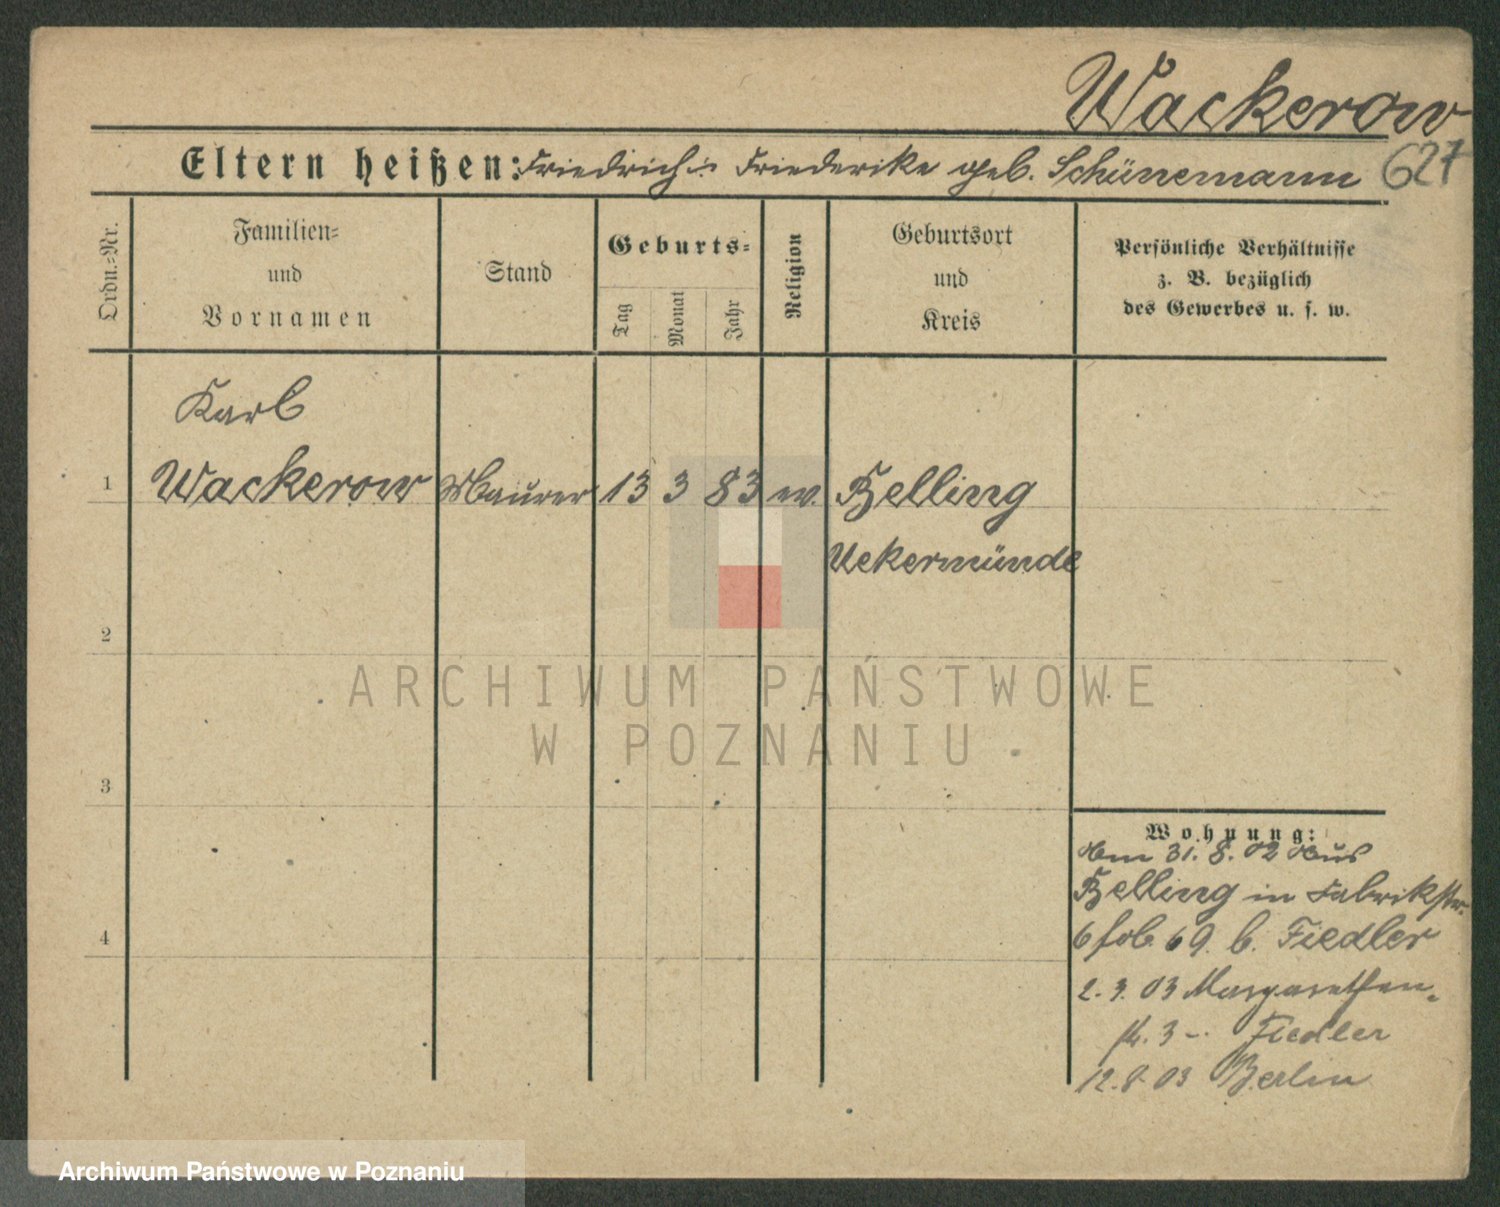 Wackerow
627
Eltern heißen: Friedrich u. Friederike geb. Schünemann
Ordn.-Nr.
Familien- und Vornamen
Stand
Geburts-
Tag
Monat
Jahr
Religion
Geburtsort und Kreis
Persönliche Verhältnisse
z. B. bezüglich
des Gewerbes u. s. w.
Karl
1 Wackerow Maurer 13 3 83 ev. Belling
Uekermünde
2
3
4
Wohnung:
Am 31. 8. 02 aus
Belling in Fabrikstr.
6 69. b. Fiedler
2. 3. 03 Margarethen-
str. 3 -. Fiedler
12. 8. 03 Berlin
ARCHIWUM PAŃSTWOWE
W POZNANIU
Archiwum Państwowe w Poznaniu